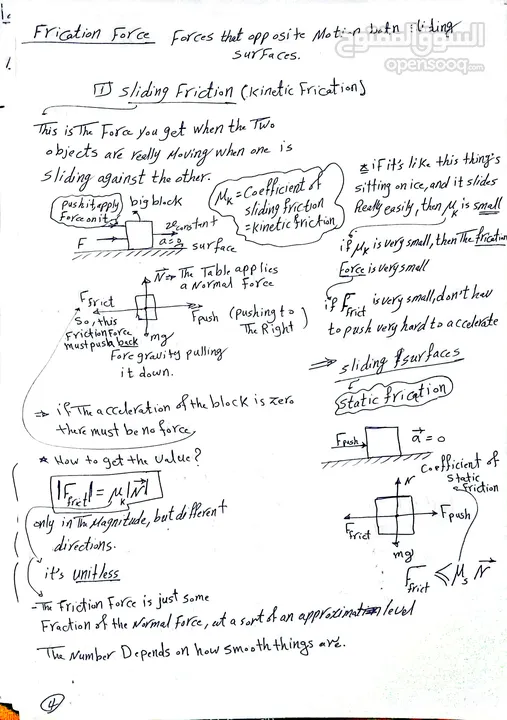 Frication Force Forces that opposite Motion betn sliding
surfaces.
السوق المفتوح
opensooq.com
1 Sliding Friction (Kinetic Frication)
This is The Force you get when the Two
objects are really Moving when one is
sliding against the other.
push it, apply
Force on it
big block
F
v constant
a=0
surface
μk = Coefficient of
sliding friction
= kinetic friction
if it's like this thing's
sitting on ice, and it slides
Really easily, then μk is small
if μk is very small, then The frication
Force is very small
if Ffrict is very small, don't have
to push very hard to accelerate
N or The Table applies
a Normal Force
Ffrict
Fpush (pushing to
The Right)
So, this
Friction Force
must push back
mg
Force gravity pulling
it down.
⇒ if The acceleration of the block is zero
there must be no force
* How to get the value?
|Ffrict| = μk |N|
only in The Magnitude, but different
directions.
it's unitless
- The Friction Force is just some
Fraction of the Normal Force, at a sort of an approximation level
The Number Depends on how smooth things are.
⇒ sliding surfaces
static frication
Fpush
a = 0
Coefficient of
static
friction
N
Ffrict
Fpush
mg
Ffrict ≤ μs N
4